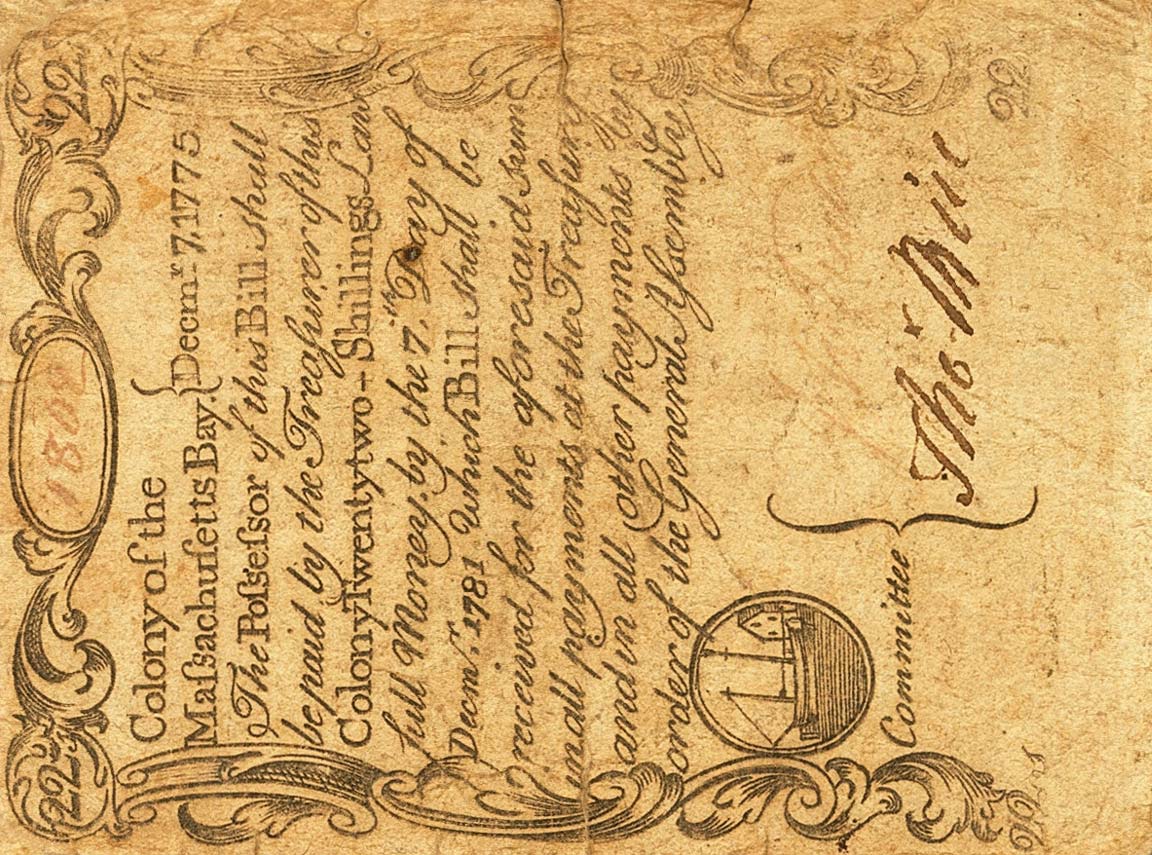 22 22
Colony of the
Maſsachuſetts Bay. } Decm.ʳ 7.1775
The Poſseſsor of this Bill shall
be paid by the Treaſurer of this
Colony Twenty two - Shillings Law
full Money. by the 7.ᵗʰ Day of
Decmʳ. 1781 Which Bill shall be
received for the aforesaid sum
in all payments at the Treaſury
and in all other payments by
order of the General Aſsembly
Committee }
22